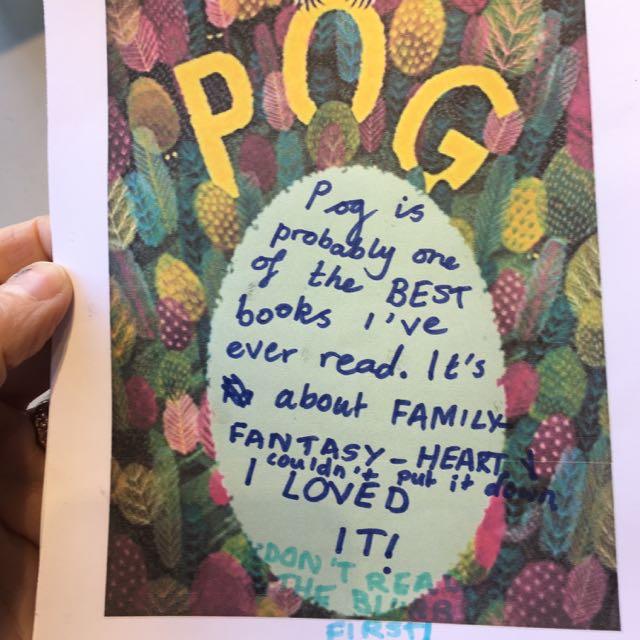 POG
Pog is
probably one
of the BEST
books I've
ever read. It's
about FAMILY-
FANTASY - HEART &
couldn't put it down
I LOVED
IT!
DON'T READ
THE BLURB
FIRST!